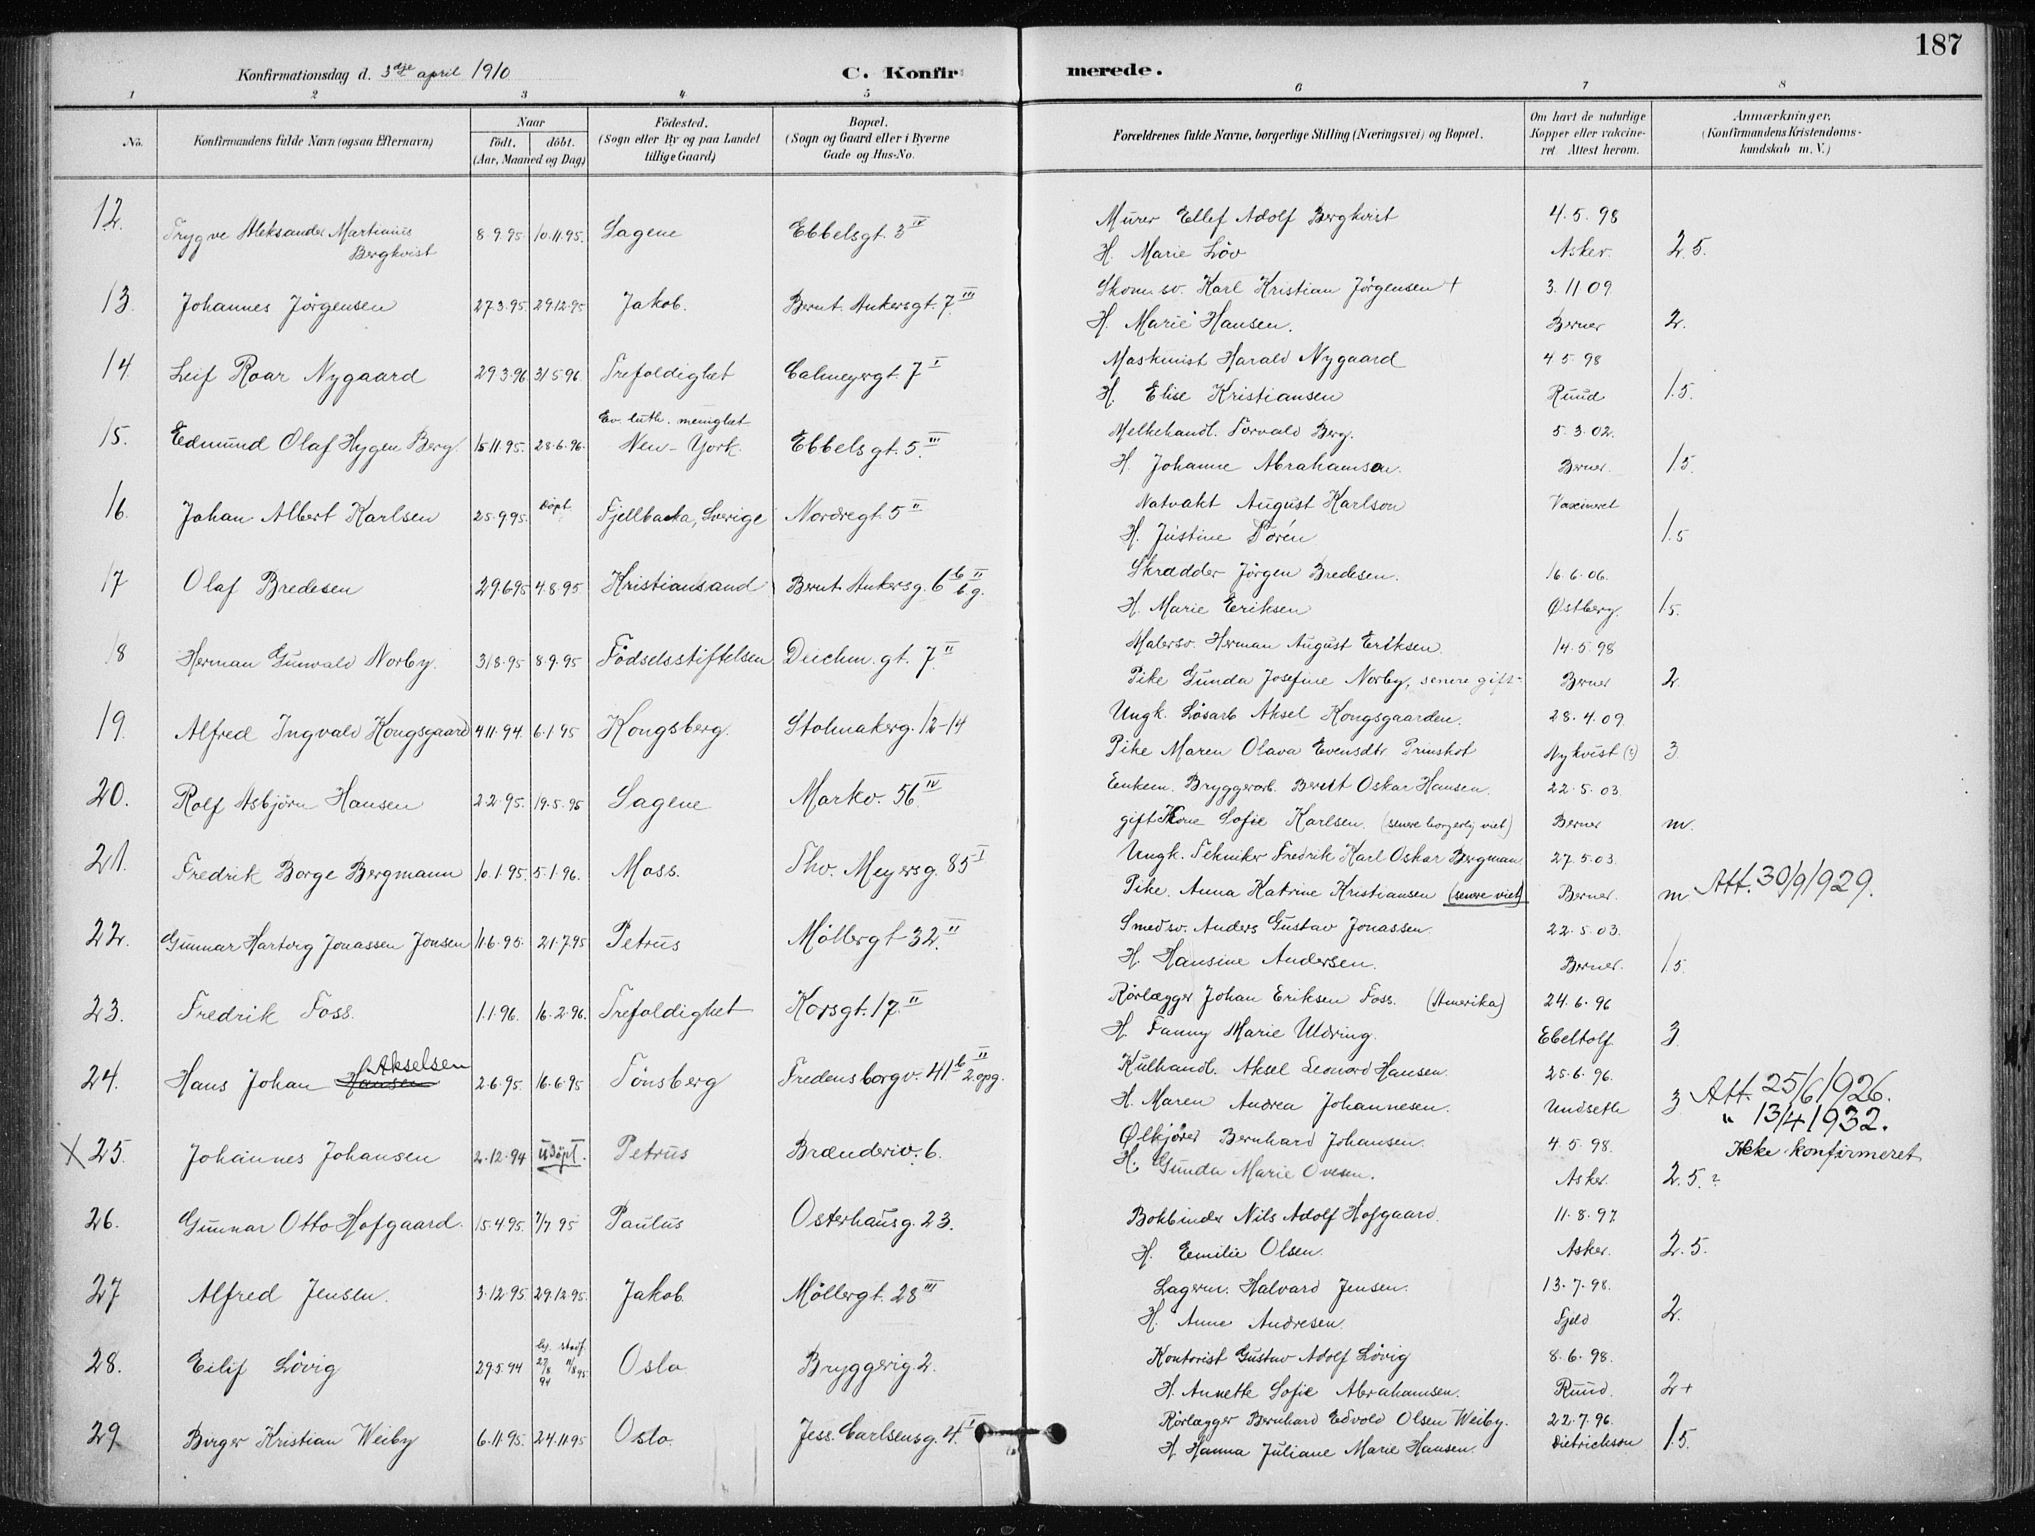 187
Konfirmationsdag d. 3dje april 1910
C. Konfirmerede.
1 2 3 4 5 6 7 8
No. Konfirmandens fulde Navn (ogsaa Efternavn) Naar født. døbt. (Aar, Maaned og Dag) Fødested. (Sogn eller By og paa Landet tillige Gaard) Bopæl. (Sogn og Gaard eller i Byerne Gade og Hus-No. Forældrenes fulde Navne, borgerlige Stilling (Næringsvei) og Bopæl. Om havt de naturlige Kopper eller vakcineret Attest herom. Anmærkninger. (Konfirmandens Kristendomskundskab m. V.)
12. Trygve Aleksander Martinius Bergkvist 8.9.95 10.11.95. Sagene Ebbelsgt. 3 IV Murer Ellef Adolf Bergkvist 4.5.98
H. Marie Löv Asker. 2.5.
13. Johannes Jörgensen 27.3.95. 29.12.95 Jakob. Bernt Ankersgt. 7 III Skom. sv. Karl Kristian Jörgensen + 3.11 09
H. Marie Hansen. Berner 2.
14. Leif Roar Nygaard 29.3.96. 31.5.96. Trefoldighet Calmeyergt. 7 I Maskinist Harald Nygaard 4 5.98
H. Elise Kristiansen Ruud 1.5.
15. Edmund Olaf Hygen Berg. 15.11.95. 28.6.96. Ev. luth. menighet New-York. Ebbelsgt. 5. III Melkehandl. Torvald Berg. 5.3.02.
H. Johanne Abrahamson. Berner. 1.5.
16. Johan Albert Karlsen 25.9.95. Döpt. Fjellbacka, Sverige Nordregt. 5 II Natvakt August Karlson Vaxineret
H. Justine Torén 1.5
17 Olaf Bredesen 29.6.95 4.8.95 Kristiansand Bernt Ankersg. 6 b II b.g. Skrædder Jörgen Bredesen. 16.6.06.
H. Marie Eriksen Østberg. 1.5.
18 Herman Gunvald Norby. 31.8.95 8.9.95 Födselsstiftelsen Deichm. gt. 7. II Malersv. Herman August Eriksen. 14.5.98
Pike Gunda Josefine Norby, senere gift- Berner 2
19. Alfred Ingvald Kongsgaard 4.11.94. 6.1.95 Kongsberg. Stolmakerg. 12-14 Ungk. Lösarb Aksel Kongsgaarden. 28.4.09.
Pike Maren Olava Evensdtr Prinshot Nykvist (?) 3
20. Rolf Asbjörn Hansen 22.95. 19.5.95 Sagene Markv. 56 IV Enkem. Bryggerarb. Berett Oskar Hansen. 22.5.03.
gift Kone Sofie Karlsen. (senere borgerlig viet) Berner m.
21. Fredrik Borge Bergmann 10.1.95. 5.1.96. Moss. Thv. Meyersg. 85 I Ungk. Tekniker Fredrik Karl Oskar Bergman 27.5.03.
Pike. Anna Katrine Kristiansen (senere viet) Berner. m Att. 30/9 1929.
22. Gunnar Hartvig Jonassen Jonsen 11.6.95. 21.7.95 Petrus Möllergt 32. II Smedsv. Anders Gustav Jonassen. 22.5.03.
H. Hansine Andersen. Berner. 1.5.
23. Fredrik Foss. 1.1.96. 16.2.96. Trefoldighet Korsgt. 17. II Rörlægger Johan Eriksen Foss. (Amerika) 24.6.96
H. Fanny Marie Uldring. Ebeltoft 3.
24. Hans Johan Hansen Akselsen 2.6.95. 16.6.95 Tönsberg Fredensborgv. 41 b II 2. opg. Kulhandl. Aksel Leonard Hansen. 25.6.96.
H. Maren Andrea Johannesen. Undseth 3 Att. 25/6 1926.
" 13/4 1932.
X 25. Johannes Johansen 2.12.94 udöpt. Petrus Brænderiv. 6. Ølkjörer Bernhard Johansen. 4.5.98. Ikke konfirmeret
H. Gunda Marie Ovesen. Asker. 2.5.?
26. Gunnar Otto Hofgaard. 15.4.95. 7/7 95 Paulus Osterhausg. 23. Bokbinder Nils Adolf Hofgaard. 11.8.97.
H. Emilie Olsen. Asker. 2.5.
27 Alfred Jensen. 3.12.95. 29.12.95. Jakob. Möllergt. 28 III Lagerm. Halvard Jensen. 13.7.98.
H. Anne Andresen. Fjeld 2.
28. Eilif Lövig 29.5.94 27/8 94 11/8 95. Oslo Bryggerig. 2. Kontorist Gustav Adolf Lövig 8.6.98.
H. Annette Sofie Abrahamsen. Ruud. 2+
29 Birger Kristian Weiby 6.11.95. 24.11.95 Oslo. Jess. Carlsensg. 4. I Rörlægger Bernhard Edvold Olsen Weiby. 22.7.96.
H. Hanna Juliane Marie Hansen. Dietrichson 1.5.